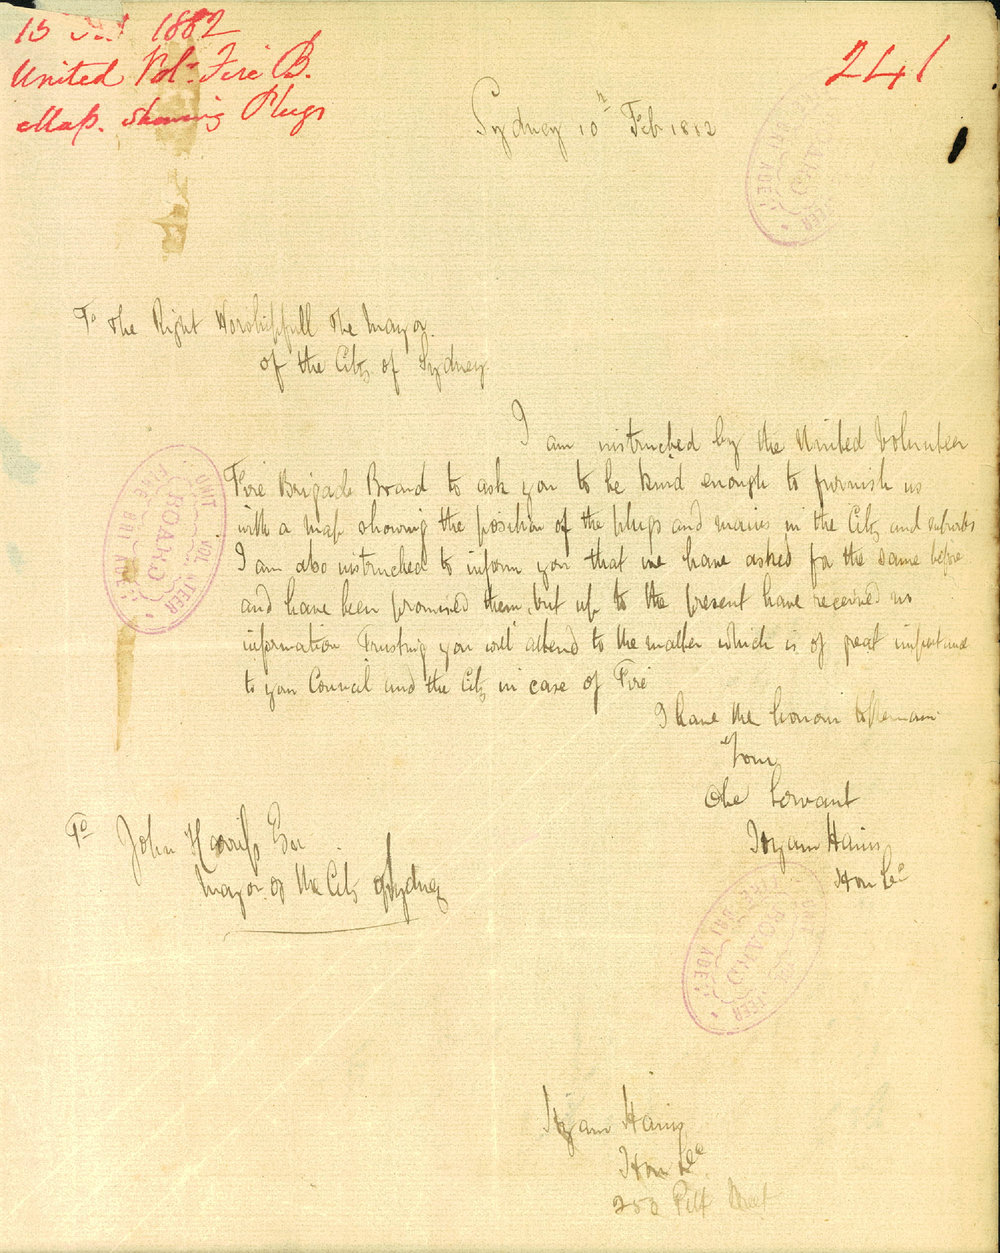 15 1882
United Vol. Fire B.
Map. Showing Plugs
241
Sydney 10th Feb 1882
To the Right Worshipfull the Mayor.
of the City of Sydney
I am instructed by the United Volunteer
Fire Brigade Board to ask you to be kind enough to furnish us
with a map showing the position of the plugs and mains in the City and suburbs
I am also instructed to inform you that we have asked for the same before
and have been promised them, but up to the present have received no
information Trusting you will attend to the matter which is of great importance
to your Council and the City in case of Fire
I have the honour to remain
Your
Obe Servant
Hyam Hains
Hon Sec
To John Harris Esq
Mayor of the City of Sydney
UNIT VOL TEER
FIRE BRI ADE
BOARD
Hyam Hains
Hon Sec
252 Pitt Street